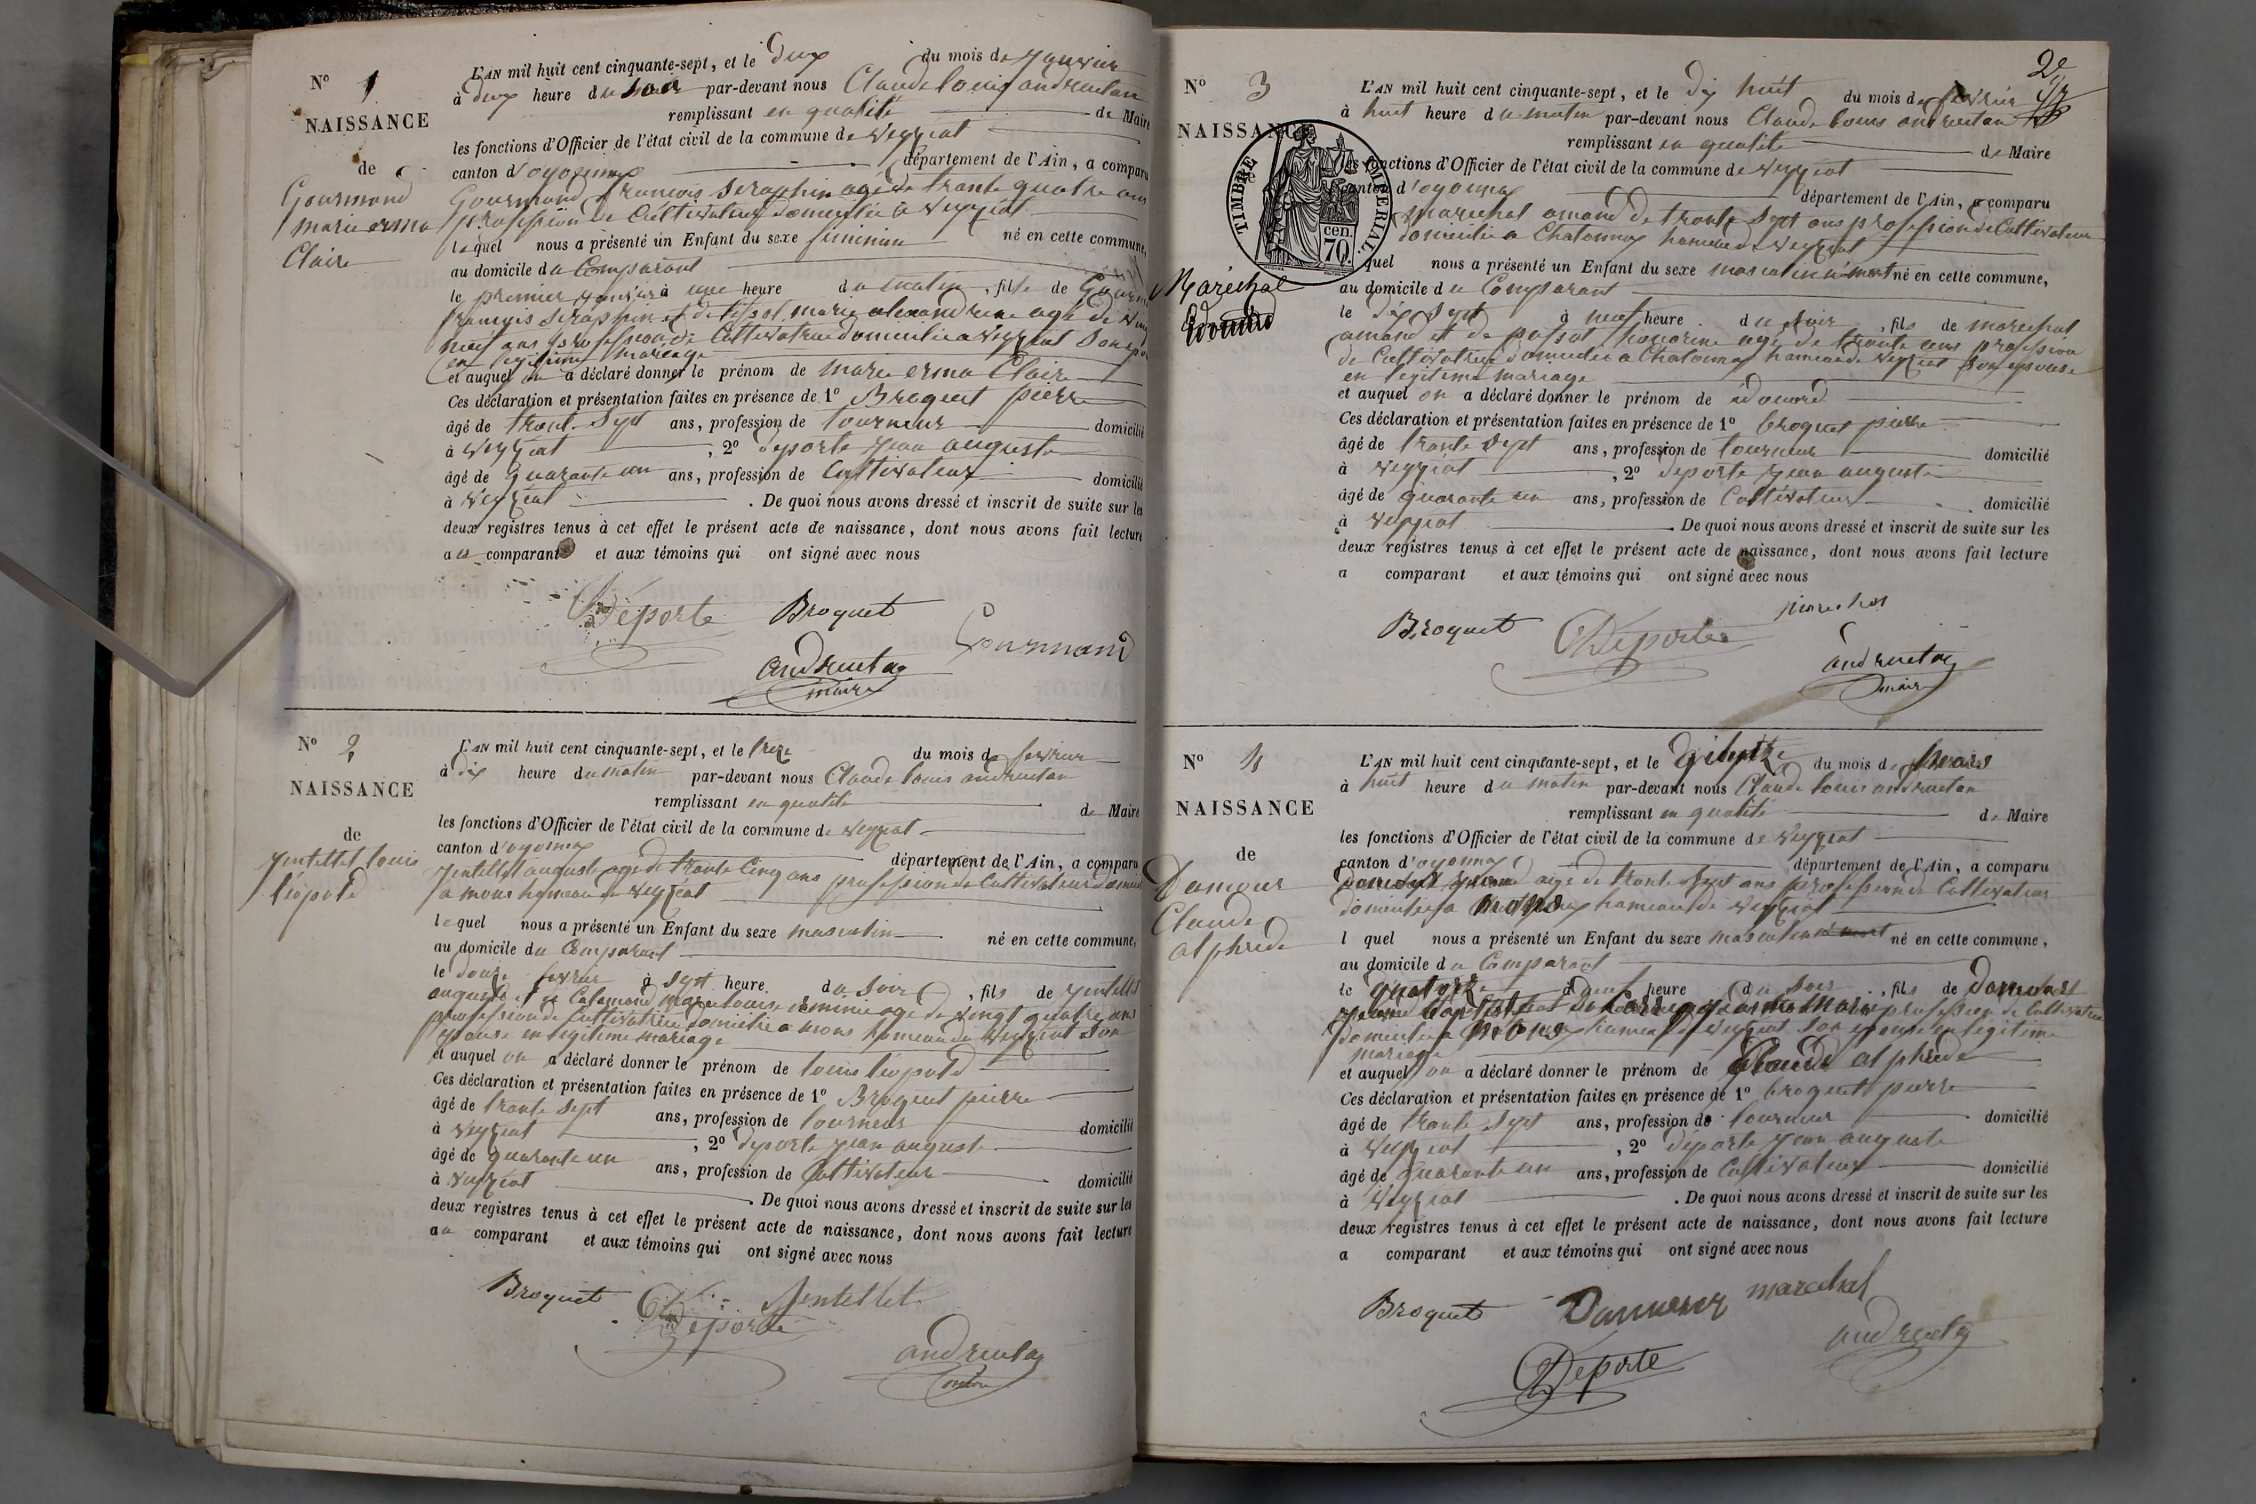 N° 1
NAISSANCE
de
Gourmand
marie erma
Claire
L'AN mil huit cent cinquante-sept, et le deux du mois de janvier
à deux heure du soir par-devant nous Claude louis andruetan
remplissant en qualité de Maire
les fonctions d'Officier de l'état civil de la commune de veyziat
canton d'oyonnax département de l'Ain, a comparu
Gourmand francois seraphin agé de trante quatre ans
profession de Cultivateur domicilié à veyziat
lequel nous a présenté un Enfant du sexe feminin né en cette commune,
au domicile du Comparant
le premier janvier à une heure du matin, fille de Gourmand
francois seraphin et de tissot marie alexandrine agé de
neuf ans profession de Cultivatrice domiciliée a veyziat son
en legitime mariage
et auquel on a déclaré donner le prénom de marie erma Claire
Ces déclaration et présentation faites en présence de 1° Broquet pierre
âgé de trante sept ans, profession de tourneur domicilié
à veyziat, 2° deporte jean auguste
âgé de quarante un ans, profession de Cultivateur domicilié
à veyziat. De quoi nous avons dressé et inscrit de suite sur les
deux registres tenus à cet effet le présent acte de naissance, dont nous avons fait lecture
au comparant et aux témoins qui ont signé avec nous
Deporte Broquet Gourmand
andruetan
maire
N° 2
NAISSANCE
de
jentellet louis
léopold
L'AN mil huit cent cinquante-sept, et le treize du mois de fevrier
à dix heure du matin par-devant nous Claude louis andruetan
remplissant en qualité de Maire
les fonctions d'Officier de l'état civil de la commune de veyziat
canton d'oyonnax département de l'Ain, a comparu
jentellet auguste agé de trante Cinq ans profession de Cultivateur
a mons hameau de veyziat
lequel nous a présenté un Enfant du sexe masculin né en cette commune,
au domicile du Comparant
le douze fevrier à sept heure du soir, fils de jentellet
auguste et de marie louise agé de vingt quatre ans
profession de Cultivatrice domicilié a mons hameau de veyziat son
epouse en legitime mariage
et auquel on a déclaré donner le prénom de louis léopold
Ces déclaration et présentation faites en présence de 1° Broquet pierre
âgé de trante sept ans, profession de tourneur domicilié
à veyziat, 2° deporte jean auguste
âgé de quarante un ans, profession de Cultivateur domicilié
à veyziat. De quoi nous avons dressé et inscrit de suite sur les
deux registres tenus à cet effet le présent acte de naissance, dont nous avons fait lecture
au comparant et aux témoins qui ont signé avec nous
Broquet Deporte Jentellet
andruetan
maire
2e
N° 3
NAISSANCE
TIMBRE IMPÉRIAL
70 cen.
Maréchal
Edouard
L'AN mil huit cent cinquante-sept, et le dix huit du mois de fevrier
à huit heure du matin par-devant nous Claude louis andruetan
remplissant en qualité de Maire
les fonctions d'Officier de l'état civil de la commune de veyziat
canton d'oyonnax département de l'Ain, a comparu
marechal amand de trante sept ans profession de Cultivateur
domicilié a Chatonnax hameau de veyziat
quel nous a présenté un Enfant du sexe masculin né mort né en cette commune,
au domicile du Comparant
le dix sept à neuf heure du soir, fils de marechal
amand et de poissat honorine agé de trante ans profession
de Cultivatrice domiciliée a Chatonnax hameau de veyziat son epouse
en legitime mariage
et auquel on a déclaré donner le prénom de édouard
Ces déclaration et présentation faites en présence de 1° broquet pierre
âgé de trante sept ans, profession de tourneur domicilié
à veyziat, 2° deporte jean auguste
âgé de quarante un ans, profession de Cultivateur domicilié
à veyziat. De quoi nous avons dressé et inscrit de suite sur les
deux registres tenus à cet effet le présent acte de naissance, dont nous avons fait lecture
a comparant et aux témoins qui ont signé avec nous
Broquet Deporte marechal
andruetan
maire
N° 4
NAISSANCE
de
Damour
Claude
alphride
L'AN mil huit cent cinquante-sept, et le quinze du mois de mars
à huit heure du matin par-devant nous Claude louis andruetan
remplissant en qualité de Maire
les fonctions d'Officier de l'état civil de la commune de veyziat
canton d'oyonnax département de l'Ain, a comparu
agé de trante sept ans profession de Cultivateur
domicilié a mons hameau de veyziat
l quel nous a présenté un Enfant du sexe masculin né mort né en cette commune,
au domicile du Comparant
le quatorze à neuf heure du soir, fils de Damour
profession de Cultivatrice
domiciliée a mons hameau de veyziat son epouse en legitime
mariage
et auquel on a déclaré donner le prénom de Claude alphride
Ces déclaration et présentation faites en présence de 1° broquet pierre
âgé de trante sept ans, profession de tourneur domicilié
à veyziat, 2° déporte jean auguste
âgé de quarante un ans, profession de Cultivateur domicilié
à veyziat. De quoi nous avons dressé et inscrit de suite sur les
deux registres tenus à cet effet le présent acte de naissance, dont nous avons fait lecture
a comparant et aux témoins qui ont signé avec nous
Broquet Damour marechal
Deporte andruetan